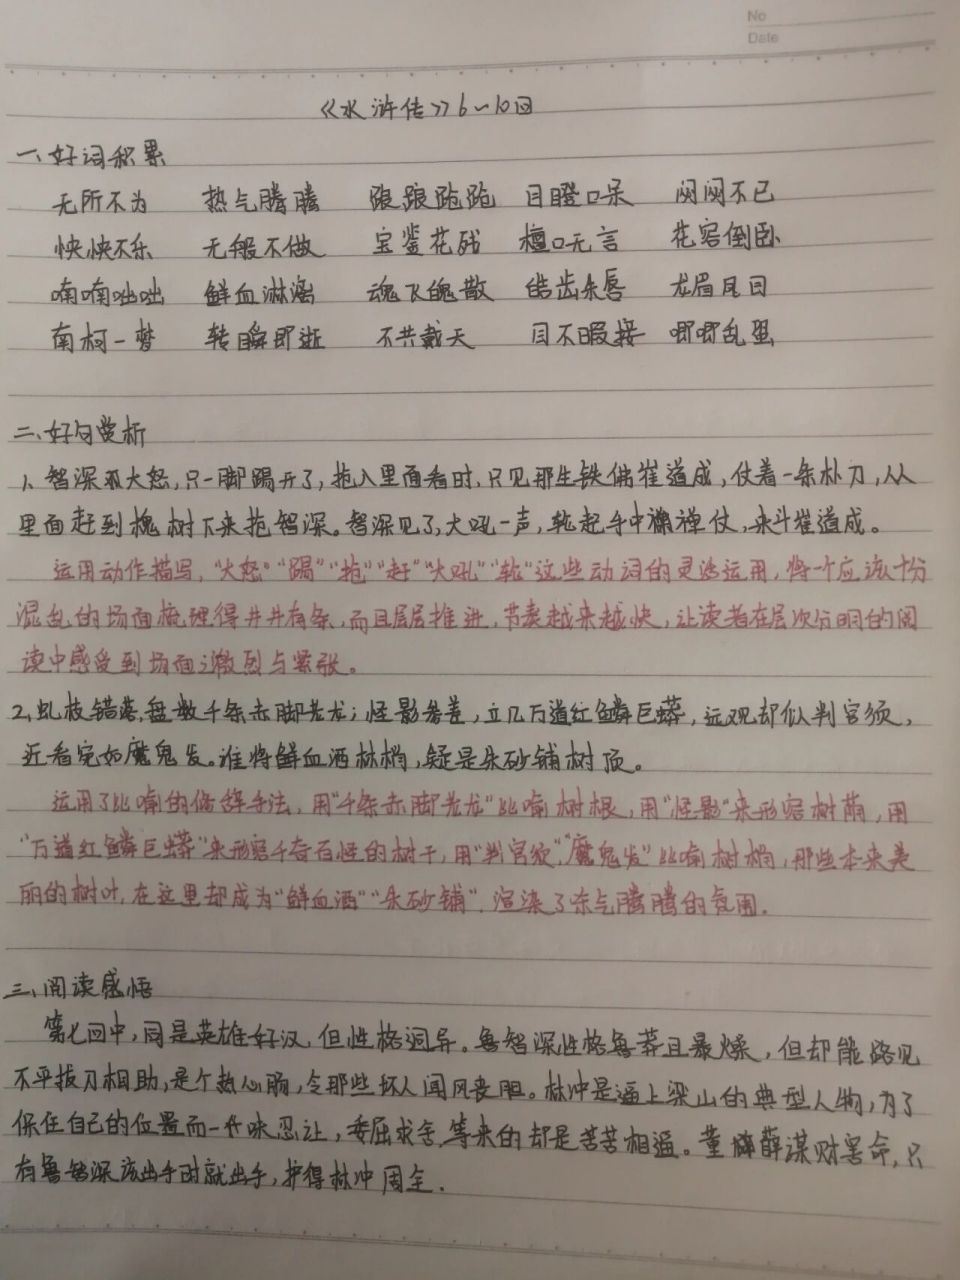 No
Date
《水浒传》6~10回
一、好词积累
无所不为 热气腾腾 踉踉跄跄 目瞪口呆 闷闷不已
怏怏不乐 无般不做 宝鉴花残 檀口无言 花容倒卧
喃喃咄咄 鲜血淋漓 魂飞魄散 皓齿朱唇 龙眉凤目
南柯一梦 转瞬即逝 不共戴天 目不暇接 唧唧乱蛩
二、好句赏析
1、智深大怒,只一脚踢开了,抢入里面看时,只见那生铁佛崔道成,仗着一条朴刀,从
里面赶到槐树下来抢智深。智深见了,大吼一声,轮起手中禅仗,来斗崔道成。
运用动作描写,“大怒”“踢”“抢”“赶”“大吼”“轮”这些动词的灵活运用,将一个应该十分
混乱的场面梳理得井井有条,而且层层推进,节奏越来越快,让读者在层次分明的阅
读中感受到场面激烈与紧张。
2、虬枝错落,盘数千条赤脚老龙;怪影参差,立几万道红鳞巨蟒,远观却似判官须,
近看宛如魔鬼发。谁将鲜血洒林梢,疑是朱砂铺树顶。
运用了比喻的修辞手法,用“千条赤脚老龙”比喻树根,用“怪影”来形容树荫,用
“万道红鳞巨蟒”来形容千奇百怪的树干,用“判官纹”“魔鬼发”比喻树梢,那些本来美
丽的树叶,在这里却成为“鲜血洒”“朱砂铺”,渲染了杀气腾腾的氛围.
三、阅读感悟
第七回中,同是英雄好汉,但性格迥异。鲁智深性格鲁莽且暴燥,但却能路见
不平拔刀相助,是个热心肠,令那些坏人闻风丧胆。林冲是逼上梁山的典型人物,为了
保住自己的位置而一味忍让,委屈求全,等来的却是苦苦相逼。董薛谋财害命,只
有鲁智深该出手时就出手,护得林冲周全.